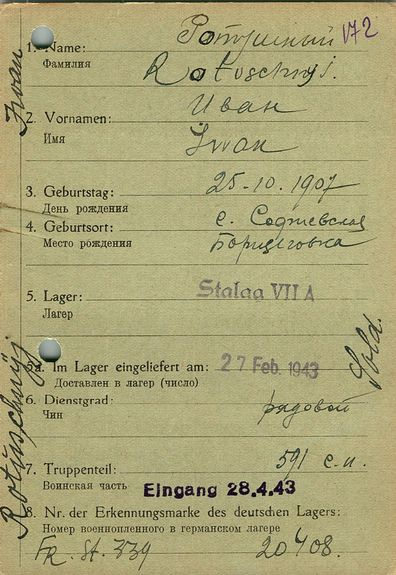 1. Name: Ротушный 172
Фамилия Rotuschnyi.
2. Vornamen: Иван
Имя Iwan
3. Geburtstag: 25-10.1907
День рождения
4. Geburtsort: с.
Место рождения
5. Lager: Stalag VII A
Лагер
5a. Im Lager eingeliefert am: 27 Feb. 1943
Доставлен в лагер (число)
6. Dienstgrad: рядовой
Чин
7. Truppenteil: 591 с.п.
Воинская часть Eingang 28.4.43
8. Nr. der Erkennungsmarke des deutschen Lagers:
Номер военнопленного в германском лагере
FR. St. 339 20408.
Iwan
Rotuschnyj
Sold.